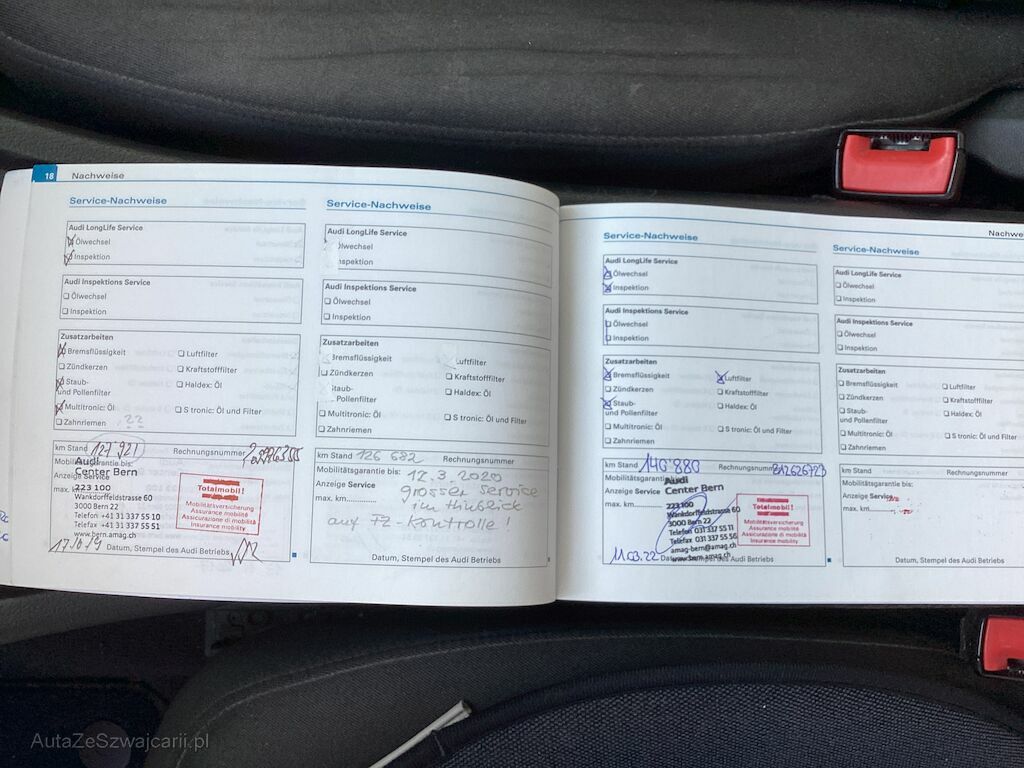 18 Nachweise
Service-Nachweise
Audi LongLife Service
Ölwechsel
Inspektion
Audi Inspektions Service
Ölwechsel
Inspektion
Zusatzarbeiten
Bremsflüssigkeit
Luftfilter
Zündkerzen
Kraftstofffilter
Staub-
und Pollenfilter
Haldex: Öl
Multitronic: Öl
S tronic: Öl und Filter
Zahnriemen
??
km Stand 127 921
Rechnungsnummer
Mobilitätsgarantie bis:
Anzeige Service
max. km
Audi
Center Bern
223 100
Wankdorffeldstrasse 60
3000 Bern 22
Telefon +41 31 337 55 10
Telefax +41 31 337 55 51
www.bern.amag.ch
Totalmobil!
Mobilitätsversicherung
Assurance mobilité
Assicurazione di mobilità
Insurance mobility
Datum, Stempel des Audi Betriebs
Service-Nachweise
Audi LongLife Service
Ölwechsel
Inspektion
Audi Inspektions Service
Ölwechsel
Inspektion
Zusatzarbeiten
Bremsflüssigkeit
Luftfilter
Zündkerzen
Kraftstofffilter
Staub-
Pollenfilter
Haldex: Öl
Multitronic: Öl
S tronic: Öl und Filter
Zahnriemen
km Stand 126 682
Rechnungsnummer
Mobilitätsgarantie bis:
Anzeige Service
max. km
12.3.2020
grosser Service
im Hinblick
auf FZ-Kontrolle!
Datum, Stempel des Audi Betriebs
Service-Nachweise
Audi LongLife Service
Ölwechsel
Inspektion
Audi Inspektions Service
Ölwechsel
Inspektion
Zusatzarbeiten
Bremsflüssigkeit
Luftfilter
Zündkerzen
Kraftstofffilter
Staub-
und Pollenfilter
Haldex: Öl
Multitronic: Öl
S tronic: Öl und Filter
Zahnriemen
km Stand 140 880
Rechnungsnummer
Mobilitätsgarantie
Anzeige Service
max. km
Audi
Center Bern
223 100
Wankdorffeldstrasse 60
3000 Bern 22
Telefon 031 337 55 11
Telefax 031 337 55 56
amag-bern@amag.ch
www.bern.amag.ch
Totalmobil!
Mobilitätsversicherung
Assurance mobilité
Assicurazione di mobilità
Insurance mobility
11.03.22
Stempel des Audi Betriebs
Service-Nachweise
Audi LongLife Service
Ölwechsel
Inspektion
Audi Inspektions Service
Ölwechsel
Inspektion
Zusatzarbeiten
Bremsflüssigkeit
Luftfilter
Zündkerzen
Kraftstofffilter
Staub-
und Pollenfilter
Haldex: Öl
Multitronic: Öl
S tronic: Öl und Filter
Zahnriemen
km Stand
Rechnungsnummer
Mobilitätsgarantie bis:
Anzeige Service
max. km
Datum, Stempel des Audi Betriebs
AutaZeSzwajcarii.pl